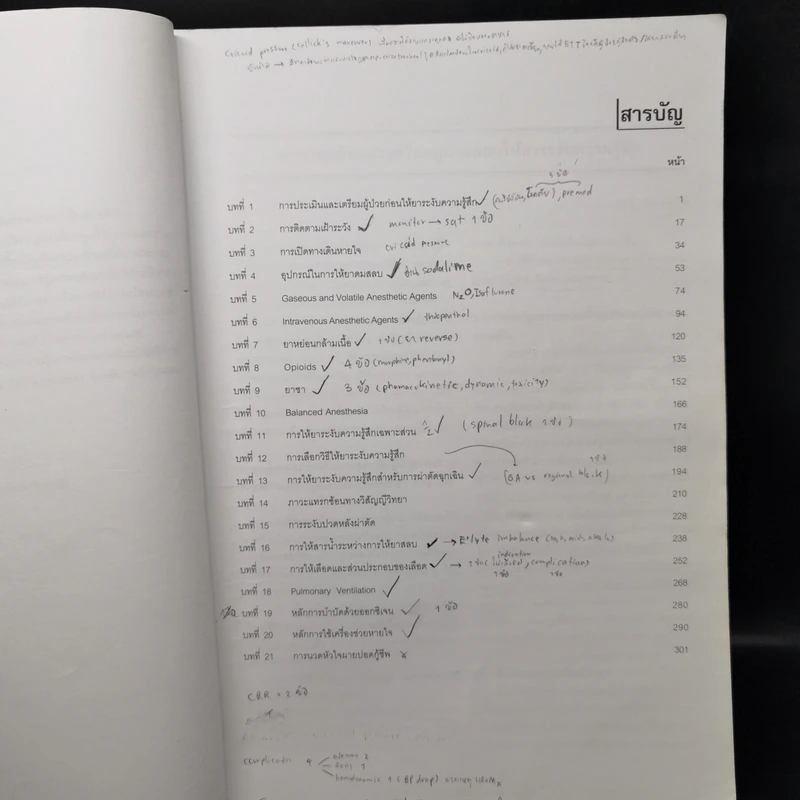 cricoid pressure (Sellick's maneuver)
สารบัญ
หน้า
3 ข้อ
บทที่ 1 การประเมินและเตรียมผู้ป่วยก่อนให้ยาระงับความรู้สึก ✓ premed 1
บทที่ 2 การติดตามเฝ้าระวัง ✓ moniter → sat 1 ข้อ 17
บทที่ 3 การเปิดทางเดินหายใจ cricoid pressure 34
บทที่ 4 อุปกรณ์ในการให้ยาดมสลบ ✓ sodalime 53
บทที่ 5 Gaseous and Volatile Anesthetic Agents N2O, Isoflurane 74
บทที่ 6 Intravenous Anesthetic Agents ✓ thiopenthol 94
บทที่ 7 ยาหย่อนกล้ามเนื้อ ✓ 1 ข้อ (ยา reverse) 120
บทที่ 8 Opioids ✓ 4 ข้อ (morphine, phentanyl) 135
บทที่ 9 ยาชา ✓ 3 ข้อ (pharmacokinetic, dynamic, toxicity) 152
บทที่ 10 Balanced Anesthesia 166
บทที่ 11 การให้ยาระงับความรู้สึกเฉพาะส่วน 2 ✓ (spinal block 2 ข้อ) 174
บทที่ 12 การเลือกวิธีให้ยาระงับความรู้สึก 188
บทที่ 13 การให้ยาระงับความรู้สึกสำหรับการผ่าตัดฉุกเฉิน ✓ (GA vs regional block) 194
บทที่ 14 ภาวะแทรกซ้อนทางวิสัญญีวิทยา 210
บทที่ 15 การระงับปวดหลังผ่าตัด 228
บทที่ 16 การให้สารน้ำระหว่างการให้ยาสลบ ✓ → E'lyte imbalance 238
indication
บทที่ 17 การให้เลือดและส่วนประกอบของเลือด ✓ → complications) 252
1 ข้อ
บทที่ 18 Pulmonary Ventilation ✓ 268
บทที่ 19 หลักการบำบัดด้วยออกซิเจน ✓ 1 ข้อ 280
บทที่ 20 หลักการใช้เครื่องช่วยหายใจ ✓ 290
บทที่ 21 การนวดหัวใจผายปอดกู้ชีพ x 301
CPR = 2 ข้อ
complication 4
hemodynamic 1 (BP drop)